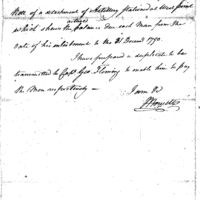 Roll of a detachment of Artillery Stationed at West point
which shews the balance due each Man from the
date of his enlistment to the 31 Decemb 1790.
I have prepared a duplicate to be
transmitted to Capt Geo. Fleming to enable him to pay
the Men respectively —
I am &c
J Howell